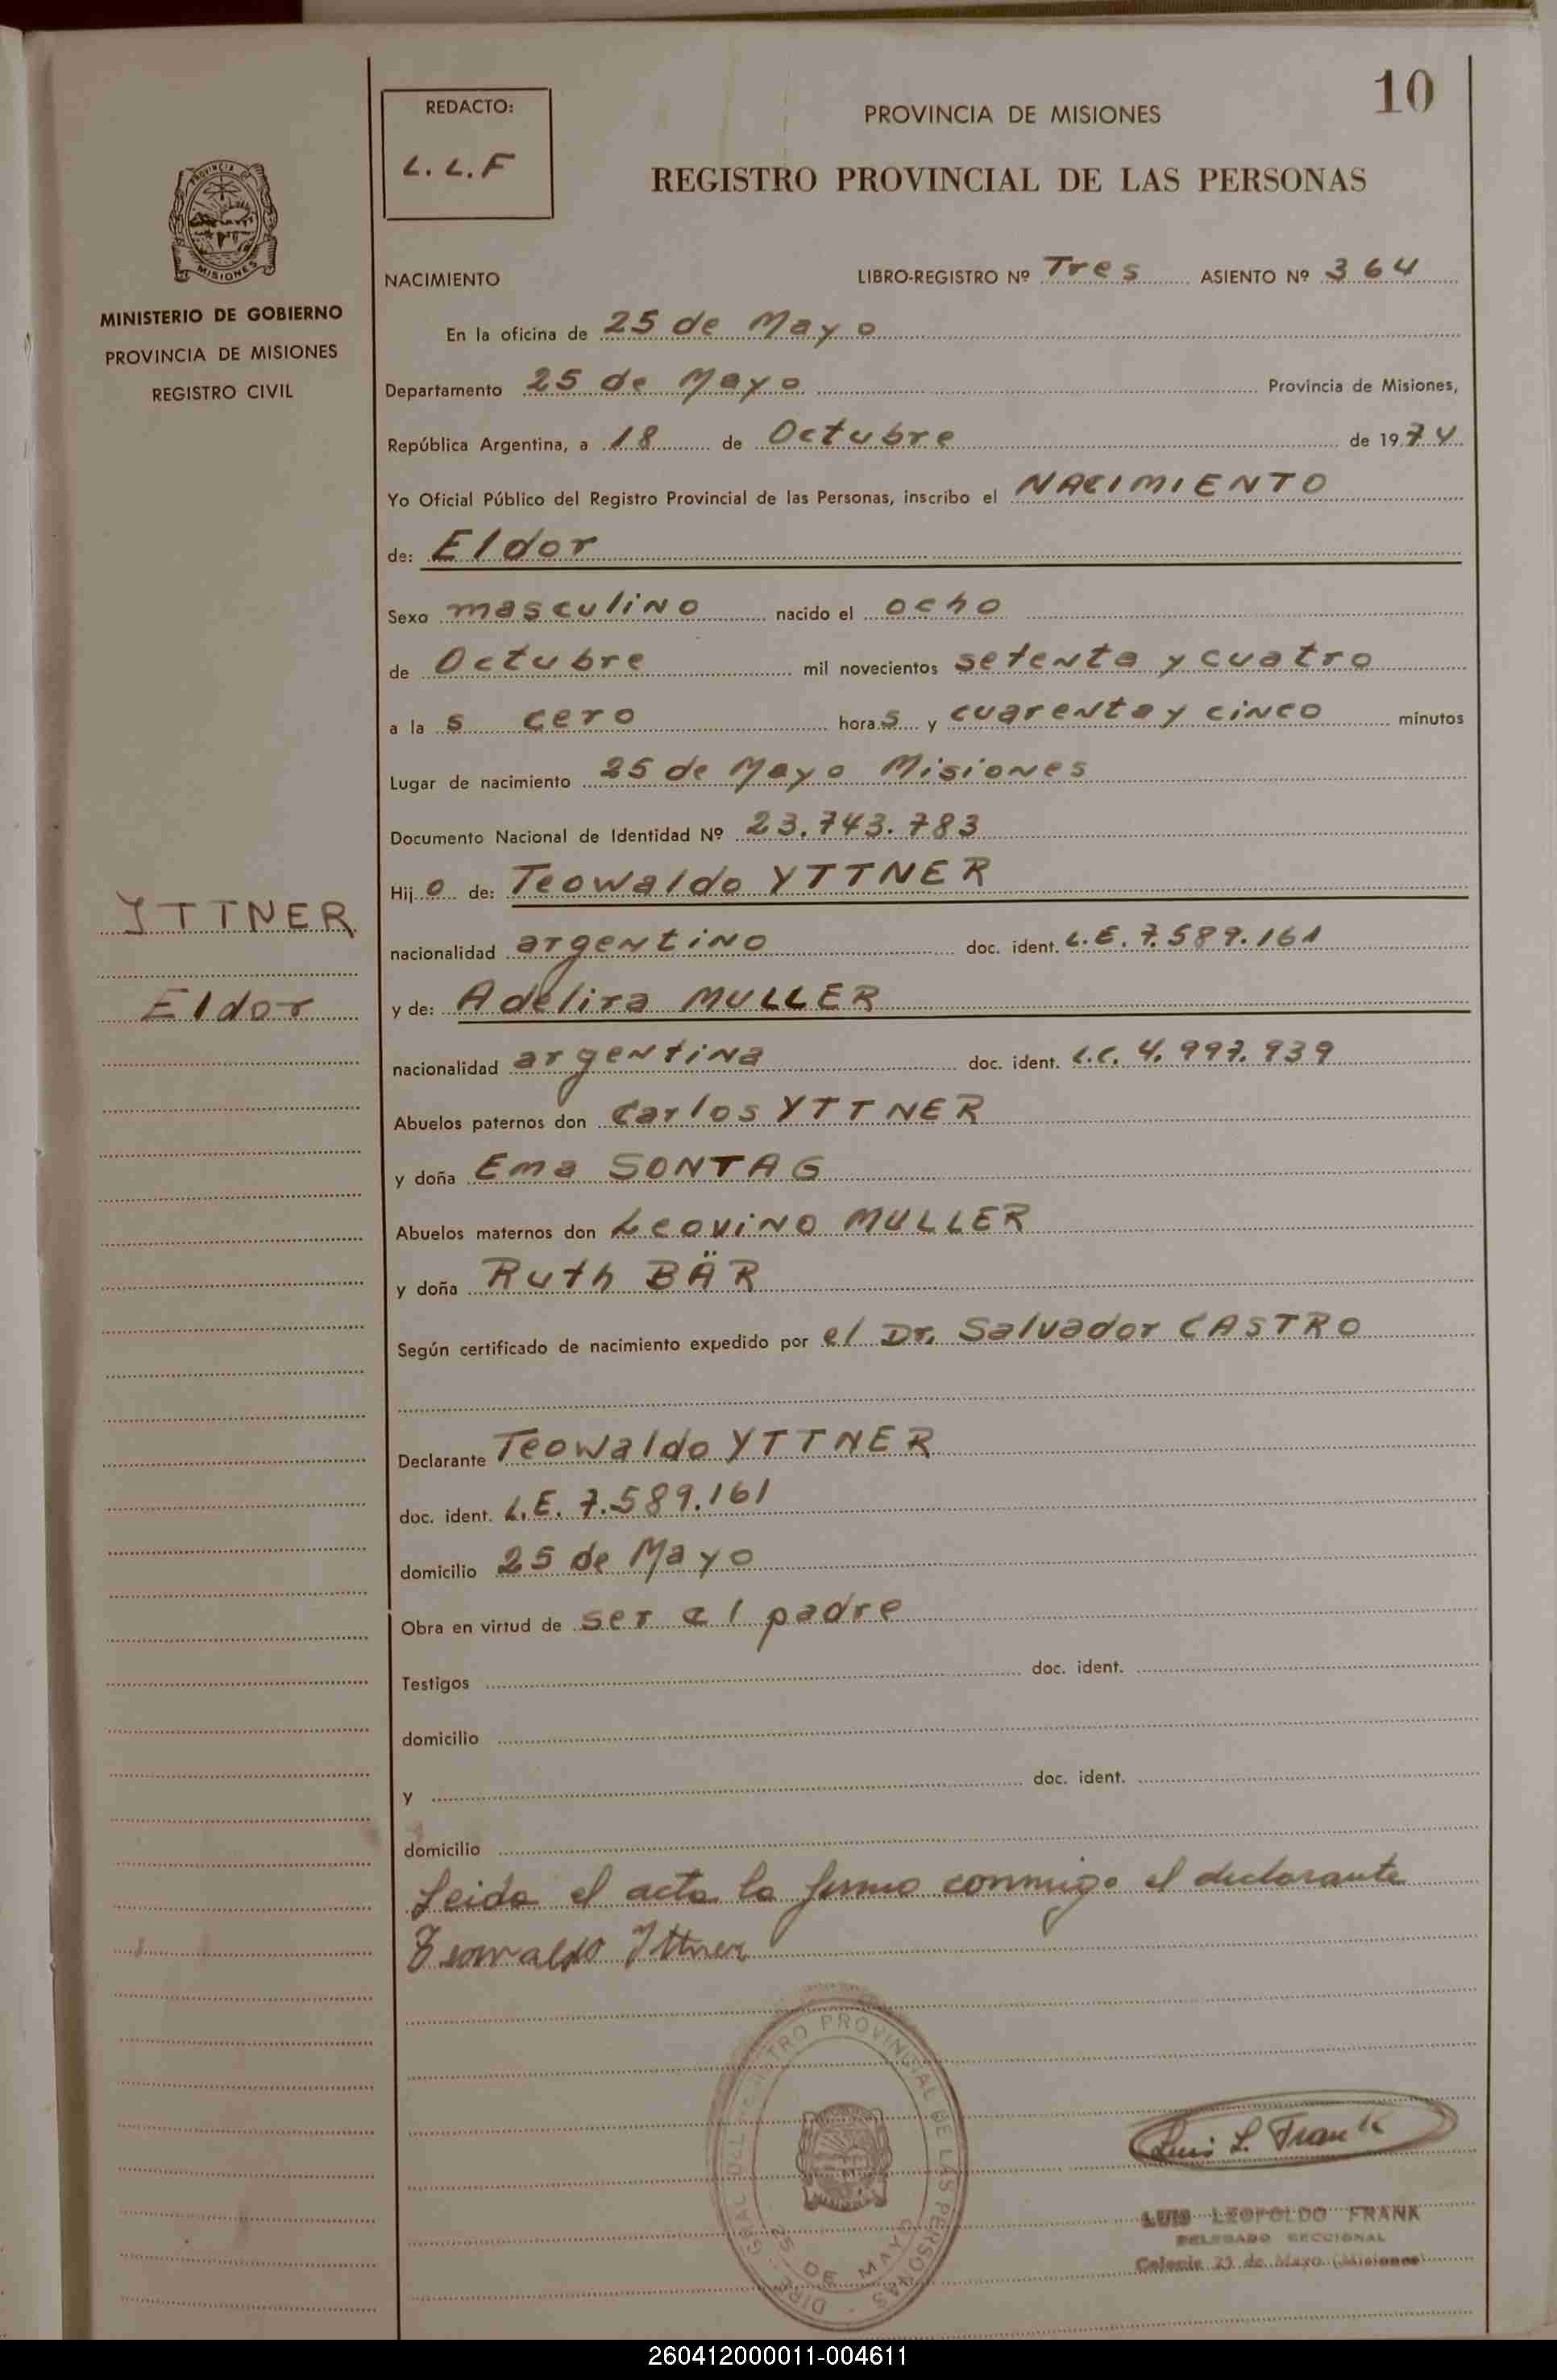 10
REDACTO:
L. L. F
PROVINCIA DE MISIONES
REGISTRO PROVINCIAL DE LAS PERSONAS
PROVINCIA DE
MISIONES
MINISTERIO DE GOBIERNO
PROVINCIA DE MISIONES
REGISTRO CIVIL
NACIMIENTO LIBRO-REGISTRO Nº Tres ASIENTO Nº 364
En la oficina de 25 de Mayo
Departamento 25 de Mayo Provincia de Misiones,
República Argentina, a 18 de Octubre de 1974
Yo Oficial Público del Registro Provincial de las Personas, inscribo el NACIMIENTO
de: Eldor
Sexo masculino nacido el ocho
de Octubre mil novecientos setenta y cuatro
a la s cero hora s y cuarenta y cinco minutos
Lugar de nacimiento 25 de Mayo Misiones
Documento Nacional de Identidad Nº 23.743.783
Hij o de: Teowaldo YTTNER
YTTNER
nacionalidad argentino doc. ident. L.E. 7.589.161
Eldor
y de: Adelira MULLER
nacionalidad argentina doc. ident. L.C. 4.997.939
Abuelos paternos don Carlos YTTNER
y doña Ema SONTAG
Abuelos maternos don Leovino MULLER
y doña Ruth BÄR
Según certificado de nacimiento expedido por el Dr. Salvador CASTRO
Declarante Teowaldo YTTNER
doc. ident. L.E. 7.589.161
domicilio 25 de Mayo
Obra en virtud de ser el padre
Testigos doc. ident.
domicilio
y doc. ident.
domicilio
Leida el acta la firmo conmigo el declarante
Teowaldo Ittner
DIREC. GRAL DEL REGISTRO PROVINCIAL DE LAS PERSONAS
25 DE MAYO
Luis L. Frank
LUIS LEOPOLDO FRANK
DELEGADO SECCIONAL
Colonia 25 de Mayo (Misiones)
260412000011-004611